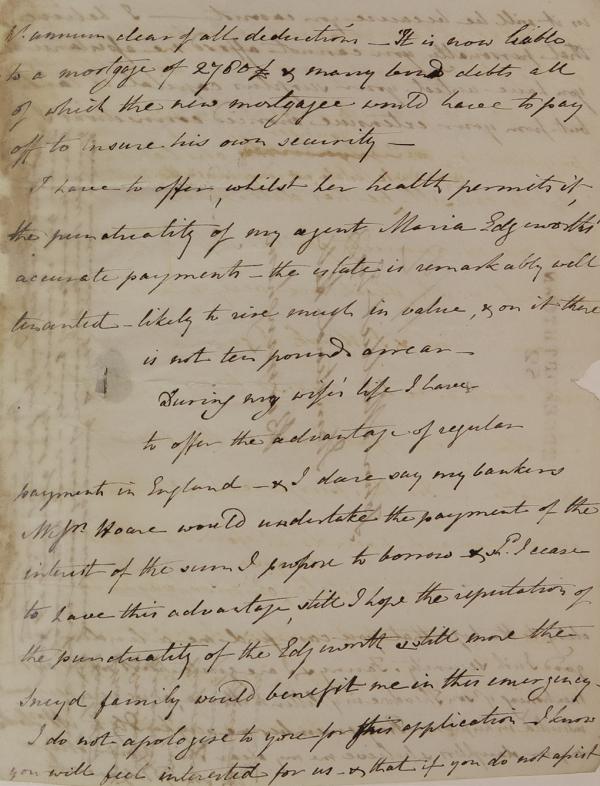 Pr. annum clear of all deductions – It is now liable
to a mortgage of 2780£ & many bond debts all
of which the new mortgagee would have to pay
off to insure his own security –
I have to offer, whilst her health permits it,
the punctuality of my agent Maria Edgeworths'
accurate payments – the estate is remarkably well
tenanted – likely to rise much in value, & on it there
is not ten pounds arrear –
During my wife's life I have
to offer the advantage of regular
payments in England – & I dare say my bankers
Messrs. Hoare would undertake the payment of the
interest of the sum I propose to borrow & I cease
to have this advantage, still I hope the reputation of
the punctuality of the Edgeworth & still more the
Sneyd family would benefit me in this emergency –
I do not apologise to you for this application – I know
you will feel interested for us – & that if you do not assist